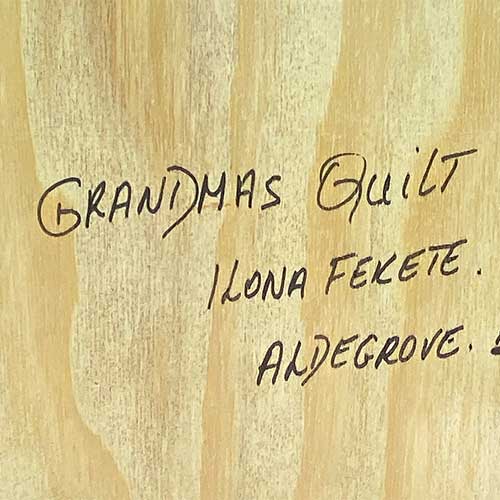 GRANDMAS QUiLT
ILONA FEKETE.
ALDEGROVE.